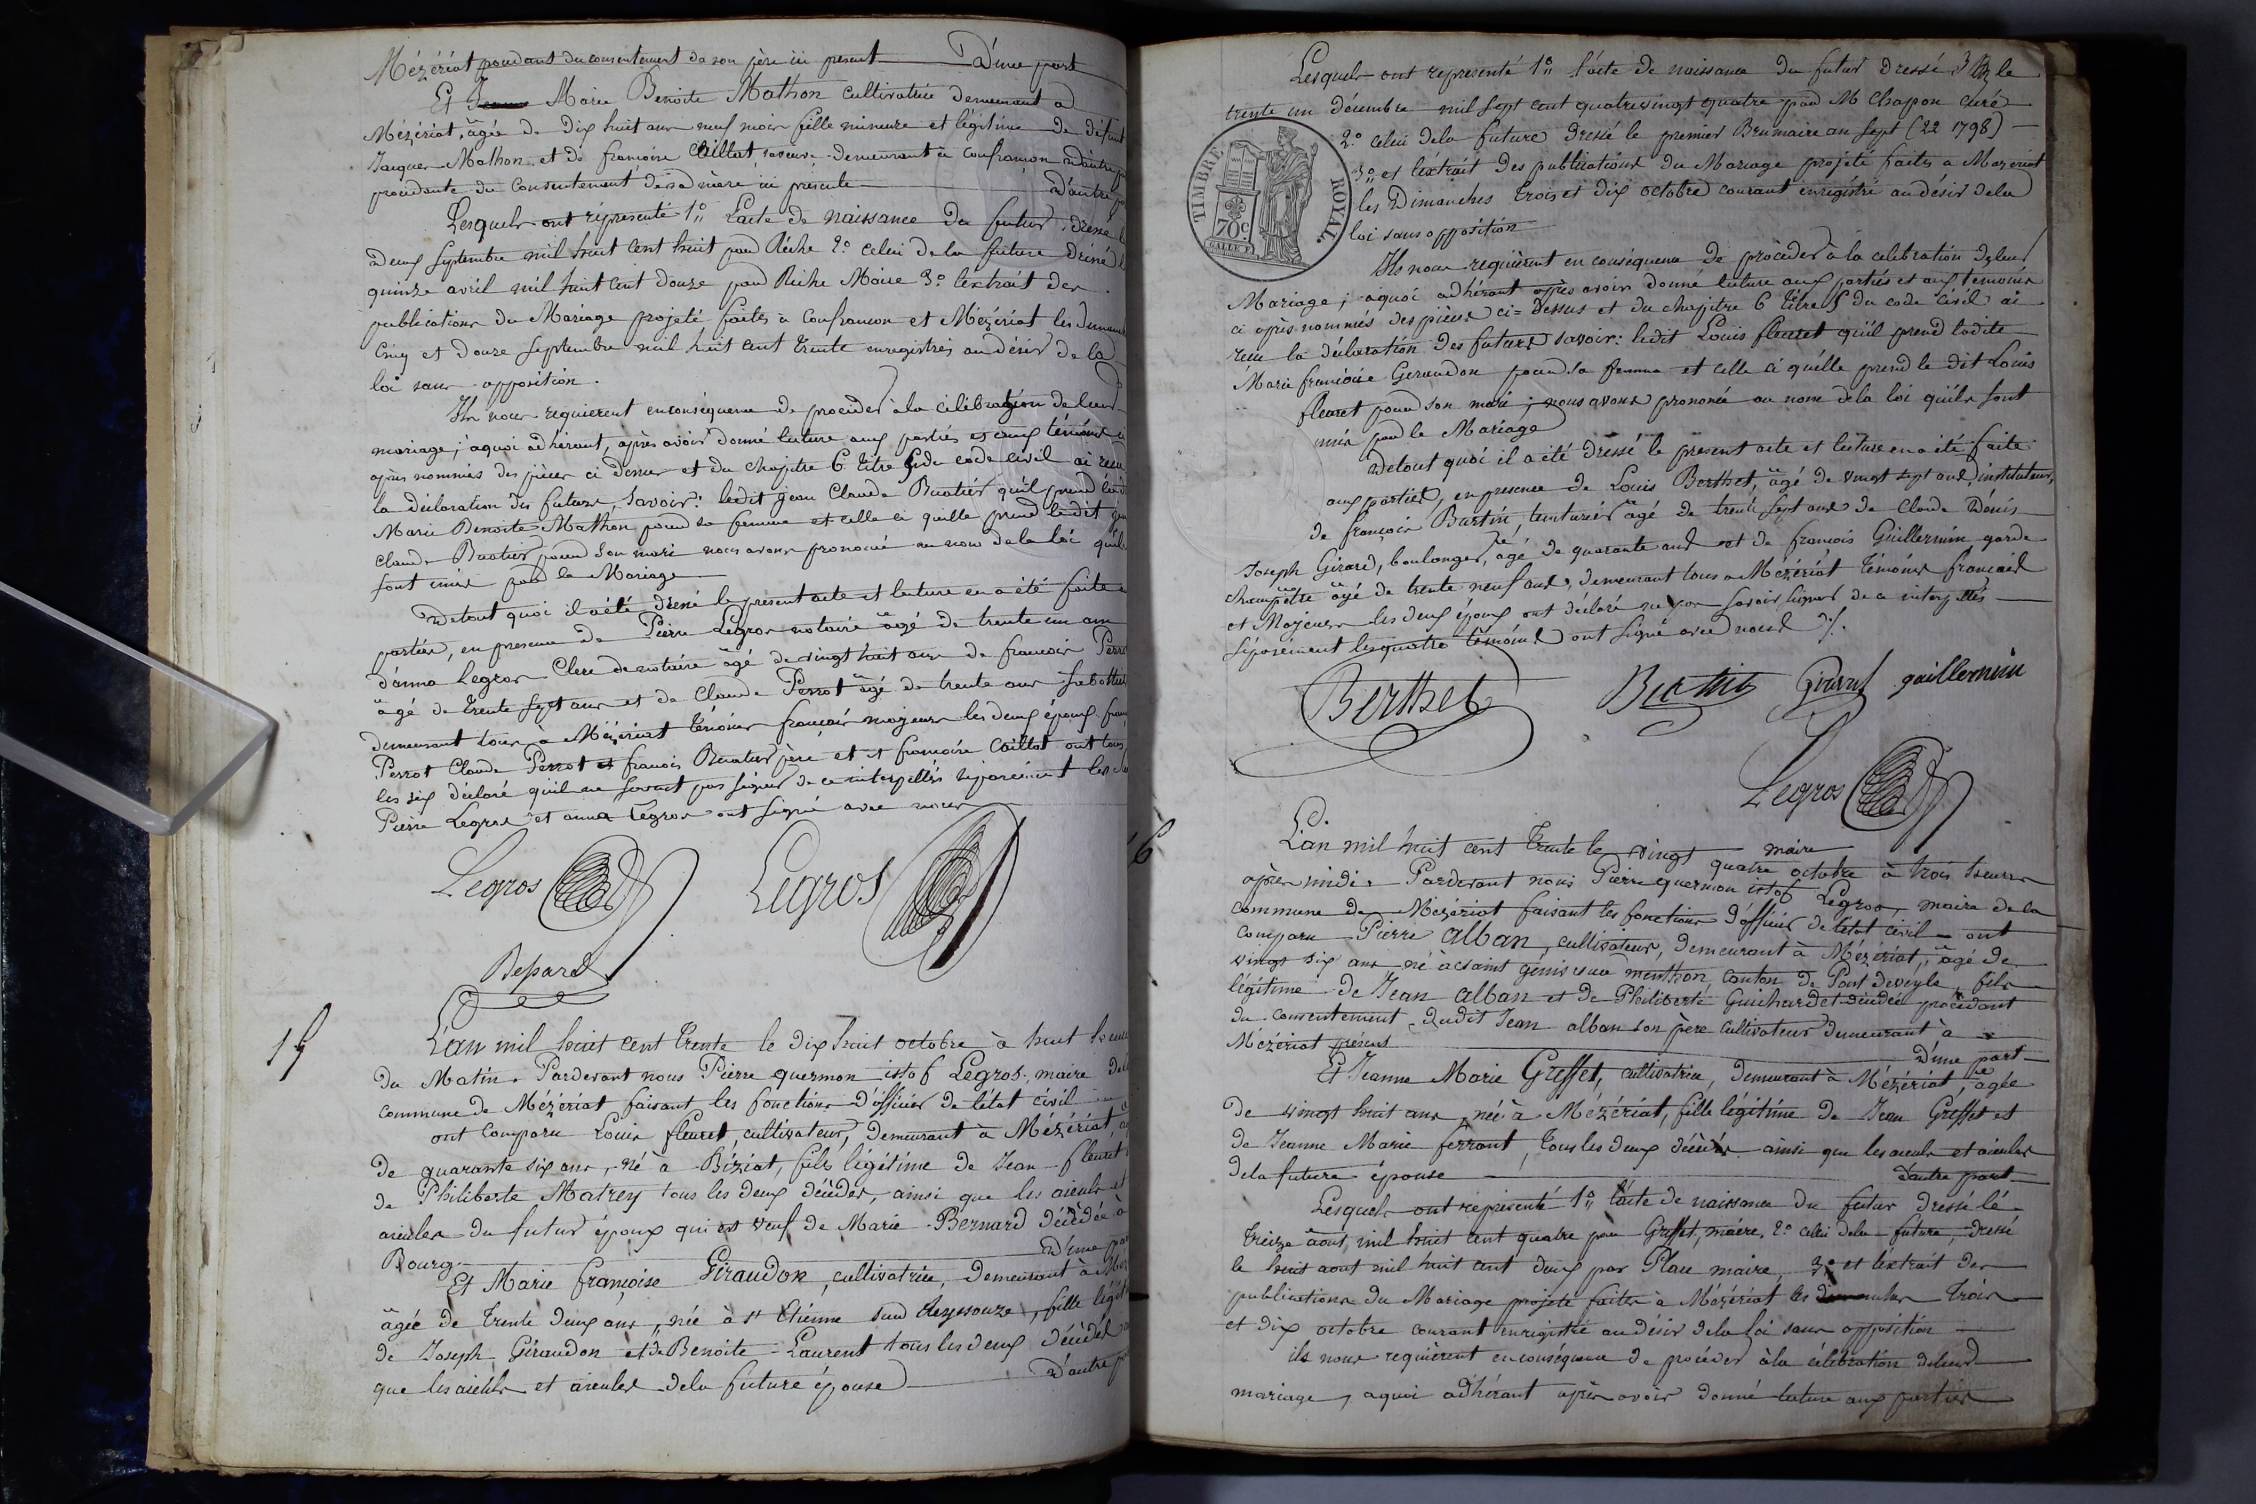 Mézériat procédant du consentement de son père ici présent D'une part
Et Marie Benoite Mathon cultivatrice demeurant à
Mézériat, âgée de dix huit ans neuf mois fille mineure et légitime de défunt
Jacques Mathon et de françoise Caillat sa veuve demeurant à confrançon
procédante du Consentement de sa mère ici présente D'autre
Lesquels ont réprésenté 1.º L'acte de naissance du futur dressé
deux septembre mil huit cent huit par Riche 2.º celui de la future dréssé
quinze avril mil huit cent douze par Riche Maire 3.º L'extrait des
publications du Mariage projeté faites à Confrançon et Mézériat les
Cinq et douze septembre mil huit cent trente enregistrés au désir de la
loi sans opposition.
Ils nous requierent en conséquence de procéder à la célébration de leur
mariage; à quoi adhérant, après avoir donné lecture aux parties et aux témoins
après nommés des pièces ci dessus et du chapitre 6 titre 5 du code civil ai recu
la déclaration des futurs, Savoir: ledit jean Claude Buatier qu'il prend
Marie Benoite Mathon pour sa femme et celle ci quelle prend ledit
Claude Buatier pour Son mari nous avons prononcé au nom de la loi qu'ils
sont unis par le Mariage
De tout quoi il a été dressé le present acte et lecture en a été faite
parties, en presence de Pierre Legros notaire âgé de trente un ans
d'anna Legros Clerc de notaire âgé de vingt huit ans de francois Perrot
âgé de trente sept ans et de Claude Perrot âgé de trente ans
demeurant tous à Mézériat témoins français majeurs les deux époux
Perrot Claude Perrot et francois Buatier père et françoise Caillat ont tous
les six déclaré qu'il ne savent pas signer de ce interpellés séparément les
Pierre Legros et anna Legros ont signé avec nous
Legros Legros
Bepard
15
L'an mil huit cent trente le dix huit octobre à huit heures
du Matin. Pardevant nous Pierre quermon Legros, maire
commune de Mézériat faisant les fonctions d'officier de l'état civil
ont Comparu Louis fleuret, cultivateur, demeurant à Mézériat,
de quarante six ans, né à Biziat, fils légitime de Jean fleuret
de Philiberte Matrey tous les deux décédés, ainsi que les aieuls et
aieules du futur époux qui est veuf de Marie Bernard décédée à
Bourg D'une
Et Marie françoise Giraudon, cultivatrice, demeurant à
âgée de trente deux ans, née à St Etienne sur Reyssouze, fille
de Joseph Giraudon et de Benoite Laurent tous les deux décédés
que les aieuls et aieules de la future épouse D'autre
Lesquels ont représenté 1.º l'acte de naissance du futur dressé le
trente un décembre mil sept cent quatrevingt quatre par M Chapon curé
2.º celui de la future dressé le premier Brumaire an sept (22 1798)
3.º et l'extrait des publications du Mariage projeté faites a Mezeriat
les Dimanches trois et dix octobre courant enregistré au désir de la
loi sans opposition
TIMBRE ROYAL.
70c
Ils nous requièrent en conséquence de procèder à la celebration de leur
Mariage; à quoi adhérant après avoir donné lecture aux parties et aux temoins
ci après nommés des pièces ci-dessus et du chapitre 6 titre 5 du code civil ai
recu la déclaration des futurs savoir: ledit Louis fleuret qu'il prend ladite
Marie françoise Geraudon pour sa femme et celle ci qu'elle prend le dit Louis
fleuret pour son mari; nous avons prononcé au nom de la loi qu'ils sont
unis par le Mariage
De tout quoi il a été dressé le present acte et lecture en a été faite
aux parties, en presence de Louis Berthet, âgé de vingt sept ans, instituteur,
de françois Bartin, teinturier âgé de trente sept ans de Claude Dénis
Joseph Girard, boulanger, âgé de quarante ans et de françois Guillermin garde
champêtre âgé de trente neuf ans, demeurant tous a Mézériat témoins francais
et Majeurs les deux époux ont déclaré ne pas savoir signer de ce interpellés
séparément les quatre témoins ont signé avec nous
Berthet Bartin Girard guillermin
Legros
16
L'an mil huit cent trente le vingt quatre octobre à trois heures
maire
après midi. Pardevant nous Pierre quermon Legros, maire de la
commune de Mézériat faisant les fonctions d'officier de l'état civil ont
comparu Pierre alban, cultivateur, demeurant à Mézériat, âgé de
vingt six ans né à saint génis sur menthon, canton de Pont de veyle, fils
légitime de Jean alban et de Philiberte Guichardet décédée procédant
du consentement dudit Jean alban son père cultivateur demeurant à
Mézériat présent D'une part
Et Jeanne Marie Greffet, cultivatrice, demeurant à Mézériat, âgée
de vingt huit ans, née à Mézériat, fille légitime de Jean Greffet et
de Jeanne Marie ferrant, tous les deux décédés ainsi que les aieuls et aieules
de la future épouse d'autre part
Lesquels ont réprésenté 1.º l'acte de naissance du futur dressé le
treize août mil huit cent quatre par Greffet, maire, 2.º celui de la future, dressé
le huit aout mil huit cent deux par Place maire, 3.º et l'extrait des
publications du Mariage projeté faites à Mézériat les dimanches trois
et dix octobre courant enregistré au désir de la loi sans opposition
ils nous requièrent en conséquence de procéder à la célébration de leur
mariage, a quoi adhérant après avoir donné lecture aux parties